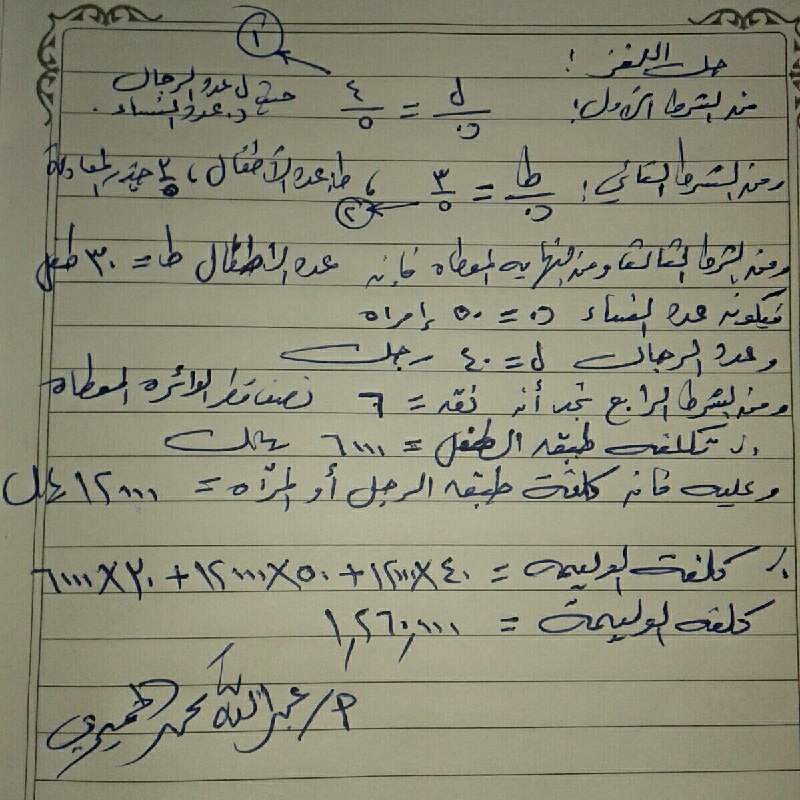 حل اللغز :
من الشرط الأول : ل/ن = ٤/٥ ← ① حيث ل عدد الرجال
ن عدد النساء .
ومن الشرط الثاني : ط/ن = ٣/٥ ← ② ، ط عدد الأطفال ، ٣/٥ جذر المعادلة
ومن الشرط الثالث ومن النهايه المعطاه فإنه عدد الأطفال ط = ٣٠ طفل
فيكون عدد النساء ن = ٥٠ إمراه
وعدد الرجال ل = ٤٠ رجل
ومن الشرط الرابع نجد أنه نقه = ٦ نصف قطر الدائره المعطاه
∴ تكلفه طبقه الطفل = ٦٠٠٠ ريال
وعليه فانه كلفة طبقه الرجل أو المرآه = ١٢٠٠٠ ريال
∴ كلفة الوليمه = ٤٠×١٢٠٠٠ + ٥٠×١٢٠٠٠ + ٣٠×٦٠٠٠
كلفه الوليمة = ١,٢٦٠,٠٠٠
م/عبدالله محمد الحميري